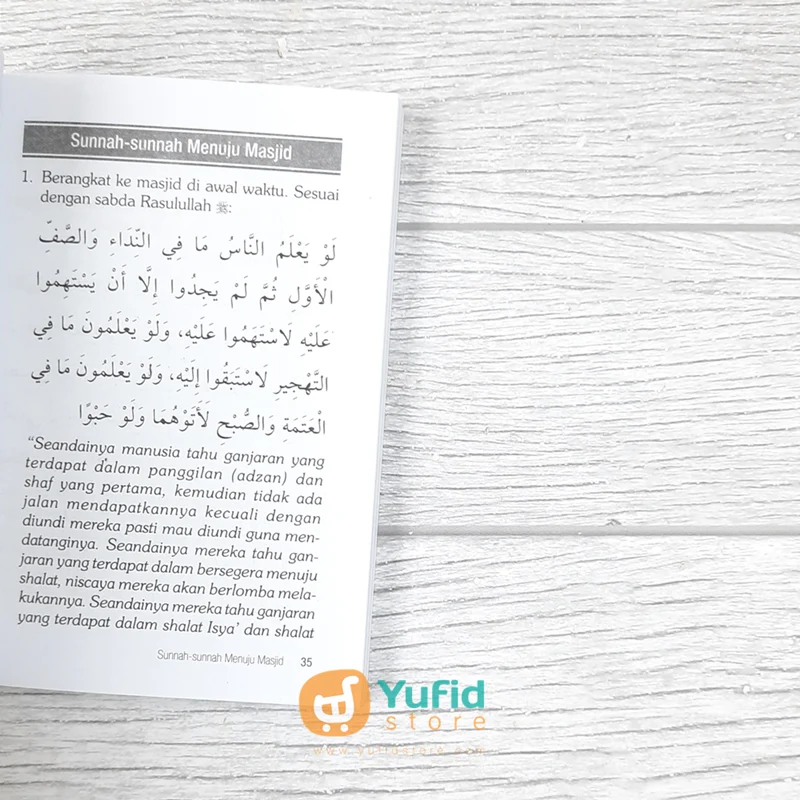 Sunnah-sunnah Menuju Masjid
1. Berangkat ke masjid di awal waktu. Sesuai
dengan sabda Rasulullah ﷺ:
لَوْ يَعْلَمُ النَّاسُ مَا فِي النِّدَاءِ وَالصَّفِّ
الْأَوَّلِ ثُمَّ لَمْ يَجِدُوا إِلَّا أَنْ يَسْتَهِمُوا
عَلَيْهِ لَاسْتَهَمُوا عَلَيْهِ، وَلَوْ يَعْلَمُونَ مَا فِي
التَّهْجِيرِ لَاسْتَبَقُوا إِلَيْهِ، وَلَوْ يَعْلَمُونَ مَا فِي
الْعَتَمَةِ وَالصُّبْحِ لَأَتَوْهُمَا وَلَوْ حَبْوًا
“Seandainya manusia tahu ganjaran yang
terdapat dalam panggilan (adzan) dan
shaf yang pertama, kemudian tidak ada
jalan mendapatkannya kecuali dengan
diundi mereka pasti mau diundi guna men-
datanginya. Seandainya mereka tahu gan-
jaran yang terdapat dalam bersegera menuju
shalat, niscaya mereka akan berlomba mela-
kukannya. Seandainya mereka tahu ganjaran
yang terdapat dalam shalat Isya’ dan shalat
Sunnah-sunnah Menuju Masjid 35
Yufid
store
www.yufidstore.com